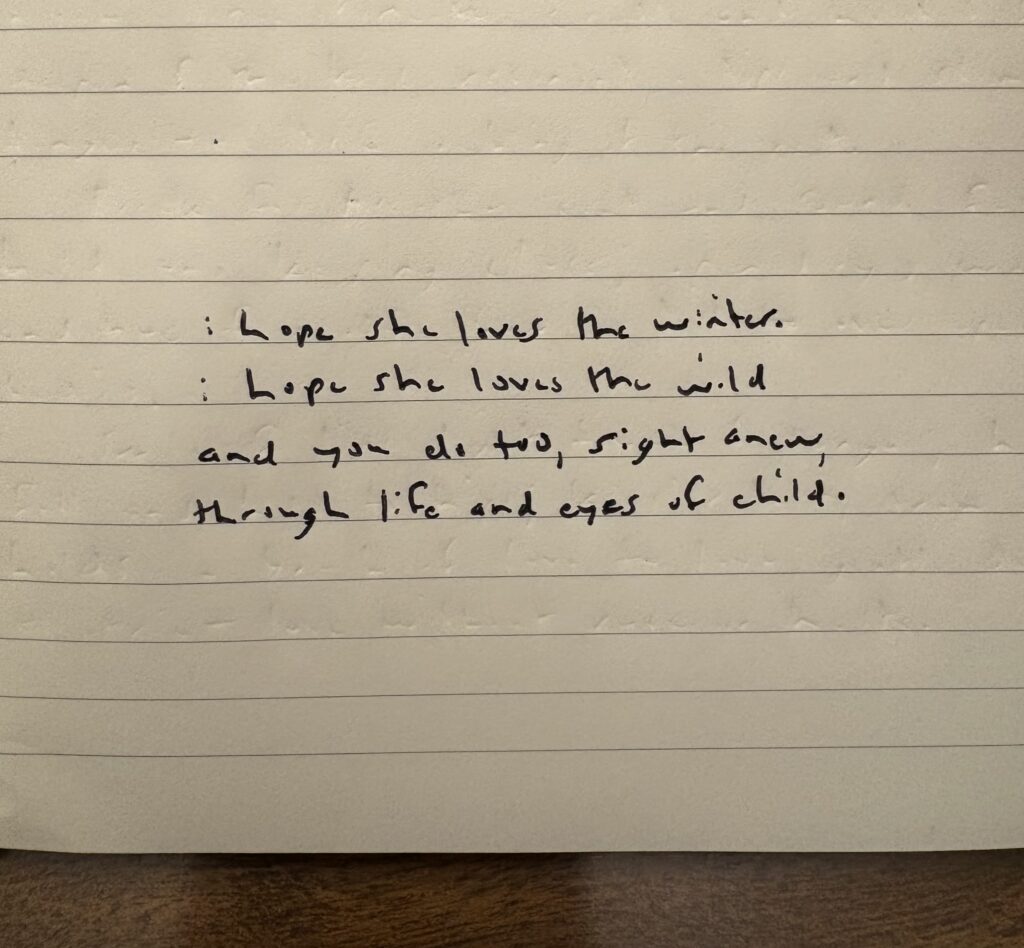 i hope she loves the winter.
i hope she loves the wild
and you do too, right anew,
through life and eyes of child.